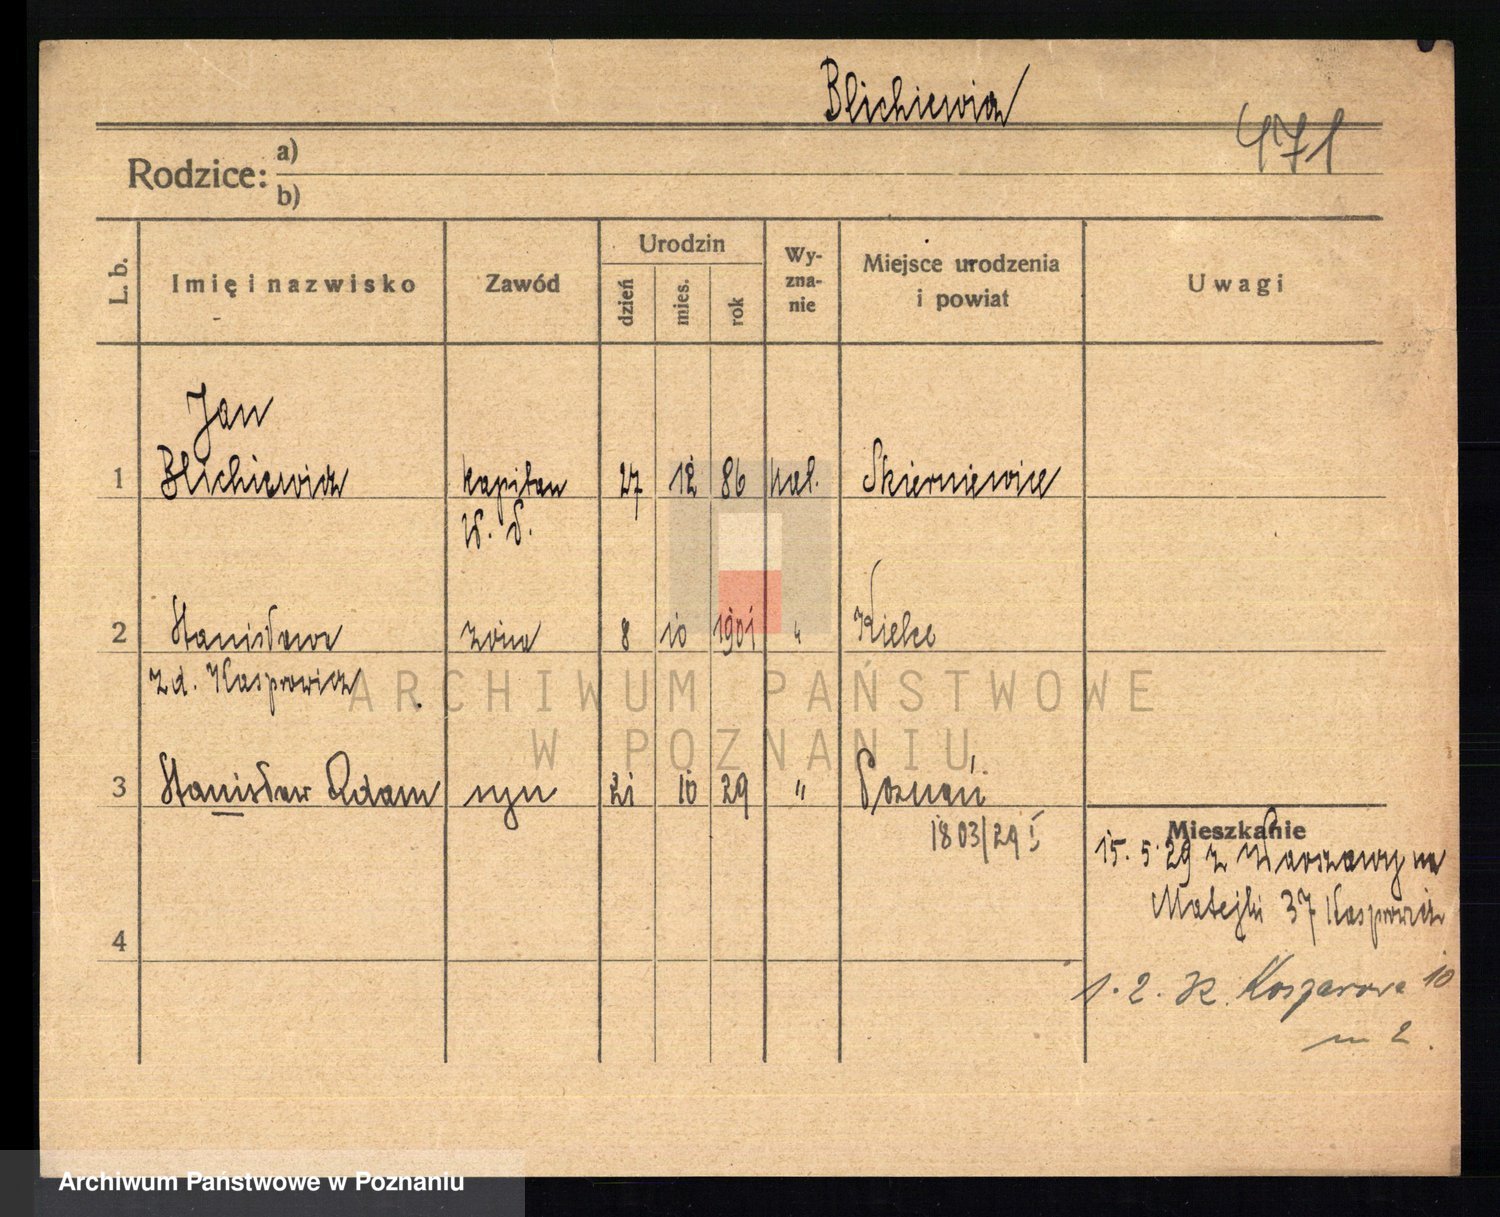 Blichiewicz
471
Rodzice: a)
b)
L. b. Imię i nazwisko Zawód Urodzin dzień mies. rok Wy-zna-nie Miejsce urodzenia i powiat Uwagi
Jan
1 Blichiewicz kapitan 27 12 86 kat. Skierniewice
W. P.
2 Stanisława żona 8 10 1901 " Kielce
z d. Kasprowicz
3 Stanisław Adam syn 21 10 29 " Poznań
1803/29 I
Mieszkanie
15. 5. 29 z Warszawy na
Matejki 37 Kasprowicz
4
1. 2. Koszarowa 10
m 2.
ARCHIWUM PAŃSTWOWE
W POZNANIU
Archiwum Państwowe w Poznaniu